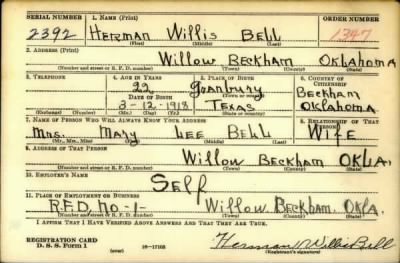 SERIAL NUMBER 1. NAME (Print) ORDER NUMBER
2392 Herman Willis Bell 1347
(First) (Middle) (Last)
2. ADDRESS (Print)
Willow Beckham Oklahoma
(Number and street or R. F. D. number) (Town) (County) (State)
3. TELEPHONE 4. AGE IN YEARS 5. PLACE OF BIRTH 6. COUNTRY OF CITIZENSHIP
22 Granbury Beckham
DATE OF BIRTH (Town or county)
3-12-1918 Texas Oklahoma
(Exchange) (Number) (Mo.) (Day) (Yr.) (State or country)
7. NAME OF PERSON WHO WILL ALWAYS KNOW YOUR ADDRESS 8. RELATIONSHIP OF THAT PERSON
Mrs. Mary Lee Bell Wife
(Mr., Mrs., Miss) (First) (Middle) (Last)
9. ADDRESS OF THAT PERSON
Willow Beckham Okla.
(Number and street or R. F. D. number) (Town) (County) (State)
10. EMPLOYER'S NAME
Self
11. PLACE OF EMPLOYMENT OR BUSINESS
R.F.D. No-1- Willow Beckham. Okla.
(Number and street or R. F. D. number) (Town) (County) (State)
I AFFIRM THAT I HAVE VERIFIED ABOVE ANSWERS AND THAT THEY ARE TRUE.
REGISTRATION CARD
D. S. S. Form 1 16-17105 Herman Willis Bell
(over) (Registrant's signature)